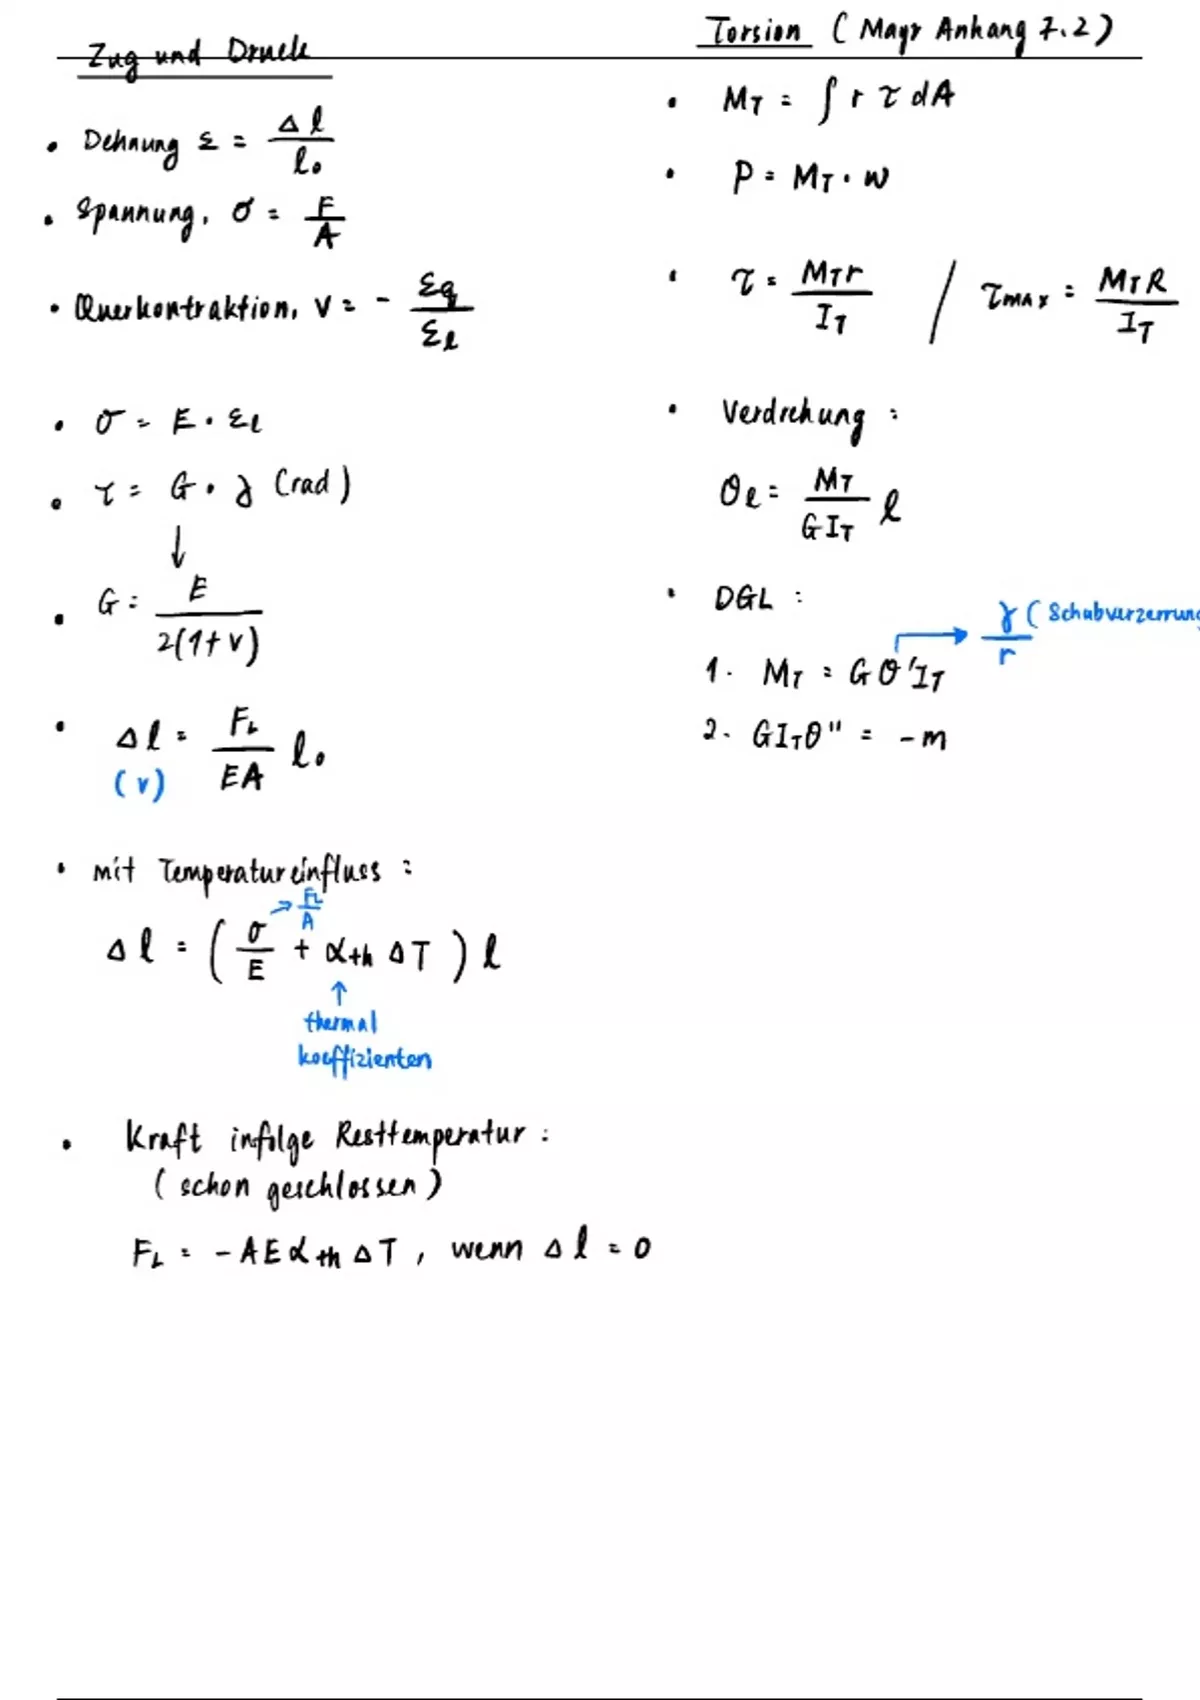 Zug und Druck
• Dehnung ε = Δl / l₀
• Spannung, σ = F / A
• Querkontraktion, ν = - εq / εl
• σ = E · εl
• τ = G · γ (rad)
↓
• G = E / 2(1+ν)
• Δl = FL / EA l₀
(v)
• mit Temperatureinfluss :
→ FL / A
Δl = ( σ / E + αth ΔT ) l
↑
thermal
koeffizienten
• Kraft infolge Resttemperatur :
( schon geschlossen )
FL = - AEαth ΔT , wenn Δl = 0
Torsion ( Mayr Anhang 7.2 )
• MT = ∫ r τ dA
• P = MT · w
• τ = MT r / IT / τmax = MT R / IT
• Verdrehung :
θl = MT / GIT l
• DGL :
→ γ / r ( Schubverzerrung
1. MT = G θ' IT
2. GIT θ'' = - m